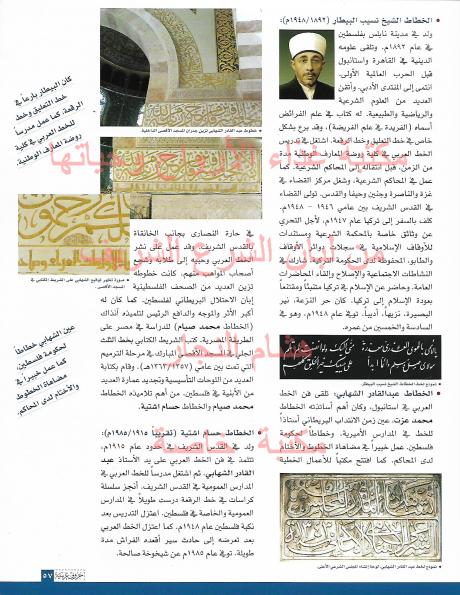 • الخطاط الشيخ نسيب البيطار (١٨٩٢/١٩٤٨م):
ولد في مدينة نابلس بفلسطين
في عام ١٨٩٢م، وتلقى علومه
الدينية في القاهرة واستانبول
قبل الحرب العالمية الأولى،
انتمى إلى المنتدى الأدبي، وأتقن
العديد من العلوم الشرعية
والرياضية والطبيعية. له كتاب في علم الفرائض
أسماه (الفريدة في علم الفريضة)، وقد برع بشكل
خاص في خط التعليق وخط الرقعة. اشتغل في تدريس
الخط العربي في كلية روضة المعارف الوطنية مدة
من الزمن، قبل انتقاله إلى المحاكم الشرعية. كما
عمل في المحاكم الشرعية، وشغل مركز القضاء في
غزة والناصرة وجنين وحيفا والقدس. تولى القضاء
في القدس الشريف بين عامي ١٩٤٦ – ١٩٤٨م،
كلف بالسفر إلى تركيا عام ١٩٤٧م، لأجل التحري
عن وثائق خاصة بالمحكمة الشرعية ومستندات
للأوقاف الإسلامية في سجلات دوائر الأوقاف
والطابو، المحفوظة لدى الحكومة التركية. شارك في
النشاطات الاجتماعية والإصلاح وإلقاء المحاضرات
العامة. وحاضر عن الإسلام في تركيا مثبتاً ومقنعاً
بعودة الإسلام إلى تركيا. كان حر النزعة، نير
البصيرة، نزيهاً، أديباً. توفي عام ١٩٤٨م، وهو في
السادسة والخمسين من عمره.
• نموذج لخط الخطاط الشيخ نسيب البيطار.
• الخطاط عبدالقادر الشهابي: تلقى فن الخط
العربي في استانبول، وكان أهم أساتذته الخطاط
محمد عزت. عين زمن الانتداب البريطاني أستاذاً
للخط في المدارس الأميرية، وخطاطاً لحكومة
فلسطين. عمل خبيراً في مضاهاة الخطوط والأختام
لدى المحاكم. كما افتتح مكتباً للأعمال الخطية
• نموذج لخط عبد القادر الشهابي، لوحة إنشاء المجلس الشرعي الأعلى.
• خطوط عبد القادر الشهابي تزين جدران المسجد الأقصى الداخلية
• صورة تظهر توقيع الشهابي على الشريط الكتابي في
المسجد الأقصى.
في حارة النصارى بجانب الخانقاة
بالقدس الشريف. وقد عمل على نشر
الخط العربي وحببه إلى طلابه وشجع
أصحاب المواهب منهم. كانت خطوطه
تزين العديد من الصحف الفلسطينية
إبان الاحتلال البريطاني لفلسطين. كما كان له
أكبر الأثر والموجه والدافع الرئيس لتلميذه آنذاك
(الخطاط محمد صيام) للدراسة في مصر على
الطريقة المصرية. كتب الشريط الكتابي بخط الثلث
الجلي في المسجد الأقصى المبارك في مرحلة الترميم
التي تمت بين عامي (١٣٥٧/١٣٦٣هـ)، وقام بكتابة
العديد من اللوحات التأسيسية وتجديد عمارة العديد
من الأبنية في فلسطين. من أهم تلاميذه الخطاط
محمد صيام والخطاط حسام اشتية.
• الخطاط حسام اشتية (تقريباً ١٩١٥/١٩٨٥م):
ولد في القدس الشريف في حدود عام ١٩١٥م،
تتلمذ في فن الخط العربي على يد الأستاذ عبد
القادر الشهابي. ثم اشتغل مدرساً للخط العربي في
المدارس العمومية في القدس الشريف. أنجز سلسلة
كراسات في خط الرقعة درست طويلاً في المدارس
العمومية والخاصة في فلسطين. اعتزل التدريس بعد
نكبة فلسطين عام ١٩٤٨م. كما اعتزل الخط العربي
بعد تعرضه إلى حادث سير أقعده الفراش مدة
طويلة. توفي عام ١٩٨٥م عن شيخوخة صالحة.
كان البيطار بارعاً في
خط التعليق وخط
الرقعة، كما عمل مدرساً
للخط العربي في كلية
روضة المعارف الوطنية.
عين الشهابي خطاطاً
لحكومة فلسطين،
كما عمل خبيراً في
مضاهاة الخطوط
والأختام لدى المحاكم.
٥٧